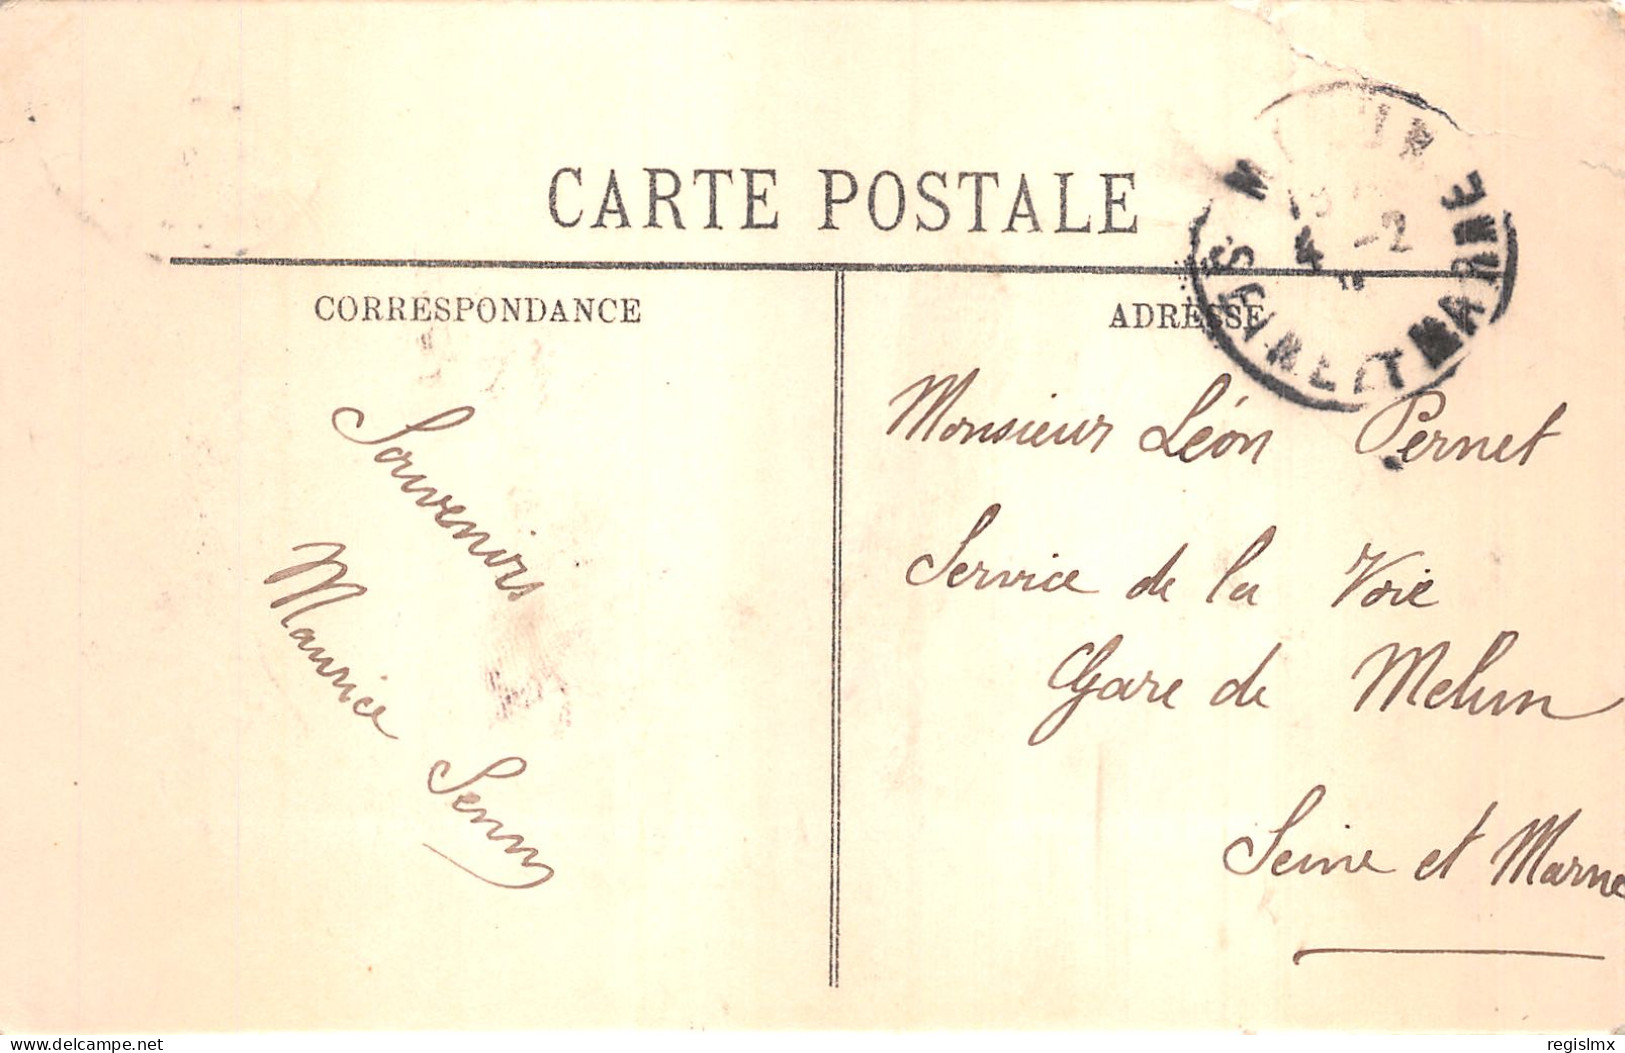 CARTE POSTALE
CORRESPONDANCE
ADRESSE
Souvenirs
Maurice Senn
Monsieur Léon Pernet
Service de la Voie
Gare de Melun
Seine et Marne
MARNE
-2
delcampe.net
regislmx